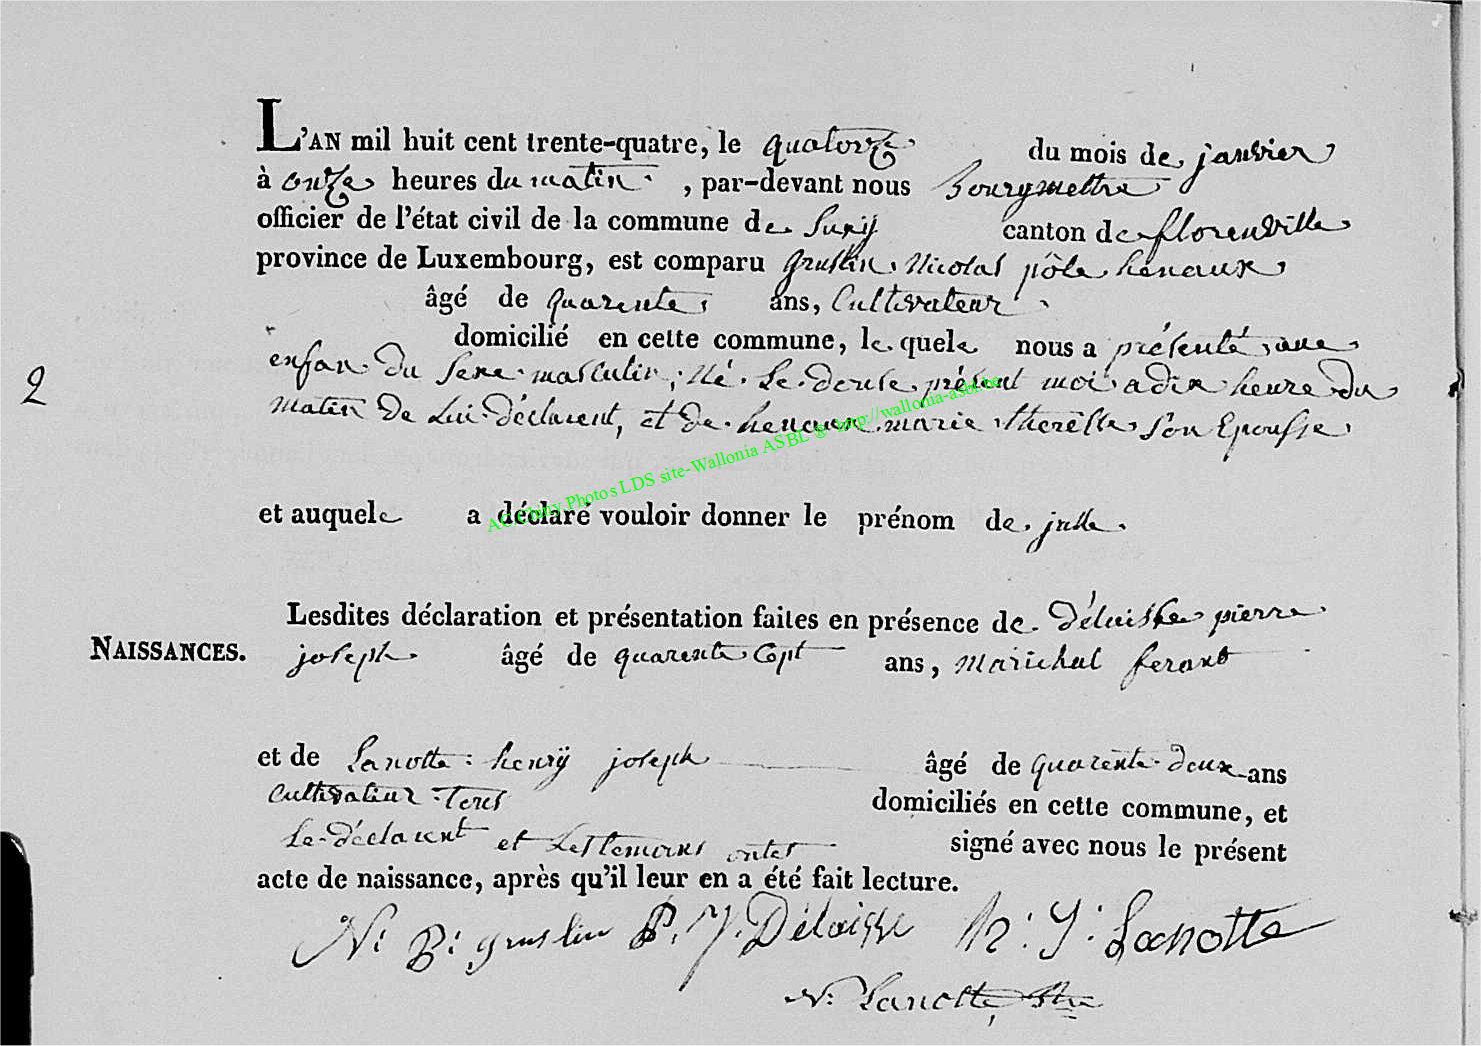 L'AN mil huit cent trente-quatre, le quatorze du mois de janvier
à onze heures du matin, par-devant nous Bourgmettre
officier de l'état civil de la commune de Suxij canton de florenville
province de Luxembourg, est comparu gruslin Nicolas henaux
âgé de quarente ans, Cultivateur
domicilié en cette commune, le quel nous a présenté une
enfan du sexe masculin, Né Le douse présent moi a dix heure du
matin de Lui déclarent, et de henaux marie theresse Son Epousse
AC Chiny Photos LDS site-Wallonia ASBL @ http://wallonia-asbl.be
et auquel a déclaré vouloir donner le prénom de julle
2
Lesdites déclaration et présentation faites en présence de Délaisse pierre
NAISSANCES.
joseph âgé de quarente Cept ans, marichal ferant
et de Lanotte henrÿ joseph âgé de quarente deux ans
cultivateur domiciliés en cette commune, et
Le déclarent et Les temoins ontet signé avec nous le présent
acte de naissance, après qu'il leur en a été fait lecture.
N: gruslin P. J. Délaisse h: J: Lanotte
N: Lanotte,